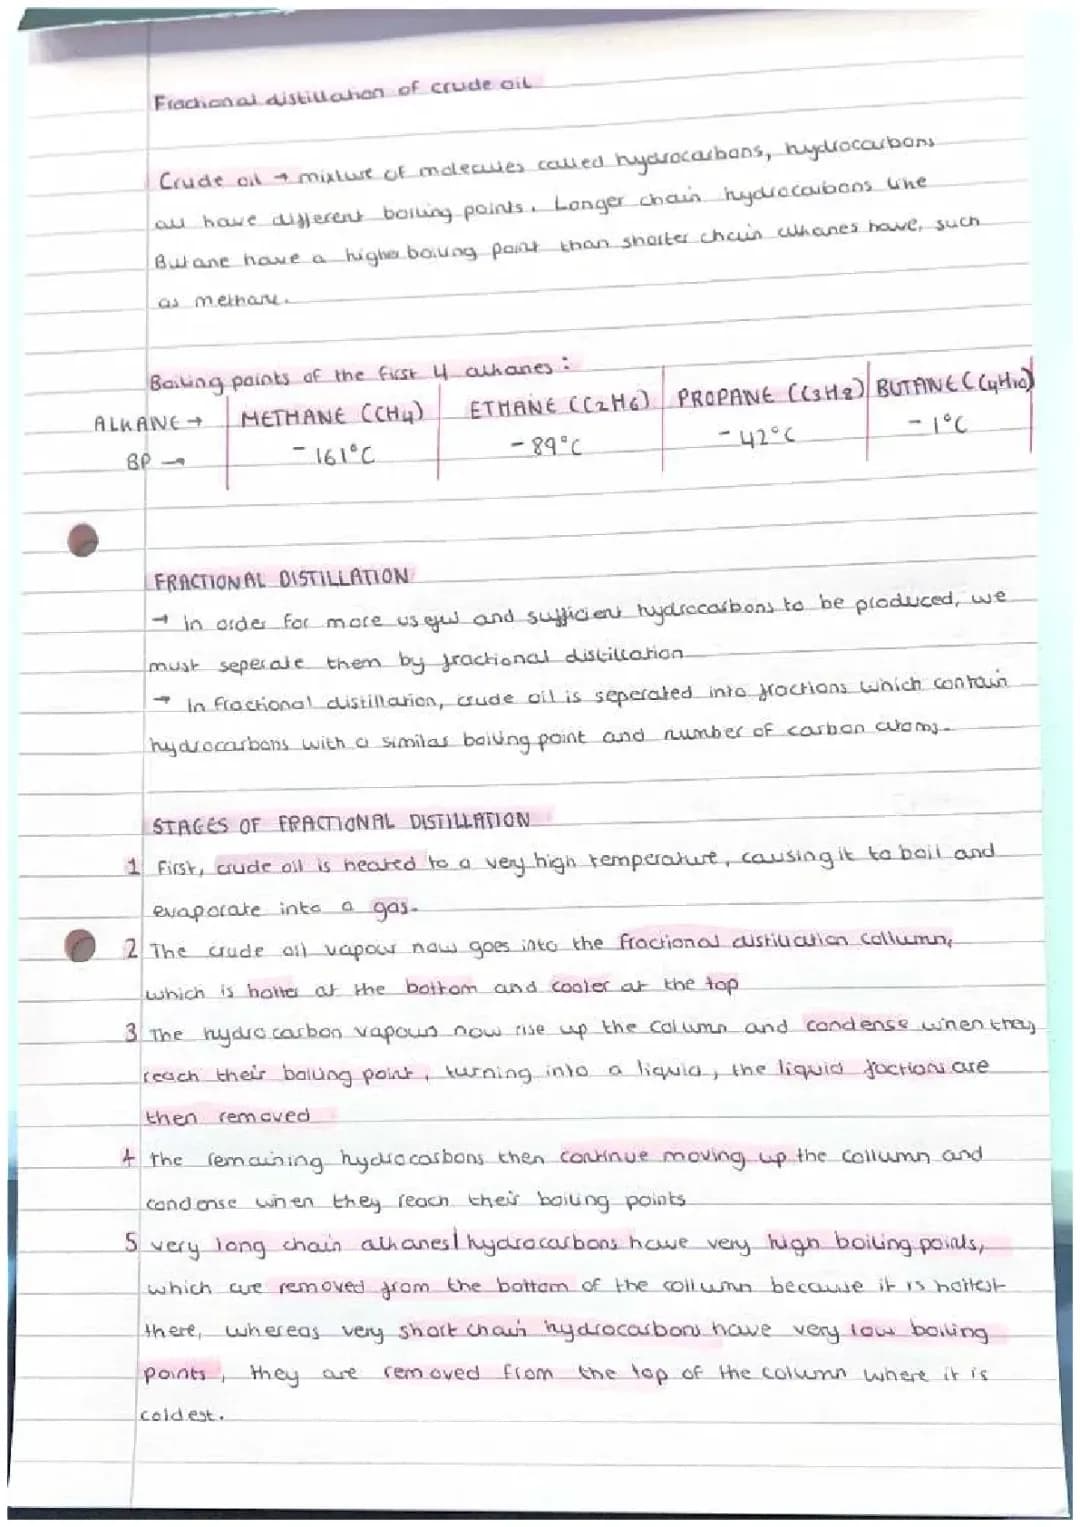 Fractional distillation of crude oil
Crude oil → mixture of molecules called hydrocarbons, hydrocarbons
all have different boiling points. Longer chain hydrocarbons like
Butane have a higher boiling point than shorter chain alkanes have, such
as methane.
Boiling points of the first 4 alkanes :
ALKANE → METHANE (CH4) ETHANE (C2H6) PROPANE (C3H8) BUTANE (C4H10)
BP → - 161°C - 89°C - 42°C - 1°C
FRACTIONAL DISTILLATION
→ In order for more useful and sufficient hydrocarbons to be produced, we
must seperate them by fractional distillation
→ In fractional distillation, crude oil is seperated into fractions which contain
hydrocarbons with a similar boiling point and number of carbon atoms.
STAGES OF FRACTIONAL DISTILLATION
1 First, crude oil is heated to a very high temperature, causing it to boil and
evaporate into a gas.
2 The crude oil vapour now goes into the fractional distillation collumn,
which is hotter at the bottom and cooler at the top
3 The hydrocarbon vapours now rise up the column and condense when they
reach their boiling point, turning into a liquid, the liquid factions are
then removed
4 the remaining hydrocarbons then continue moving up the collumn and
condense when they reach their boiling points
5 very long chain alkanes/hydrocarbons have very high boiling points,
which are removed from the bottom of the collumn because it is hottest
there, whereas very short chain hydrocarbons have very low boiling
points, they are removed from the top of the column where it is
coldest.